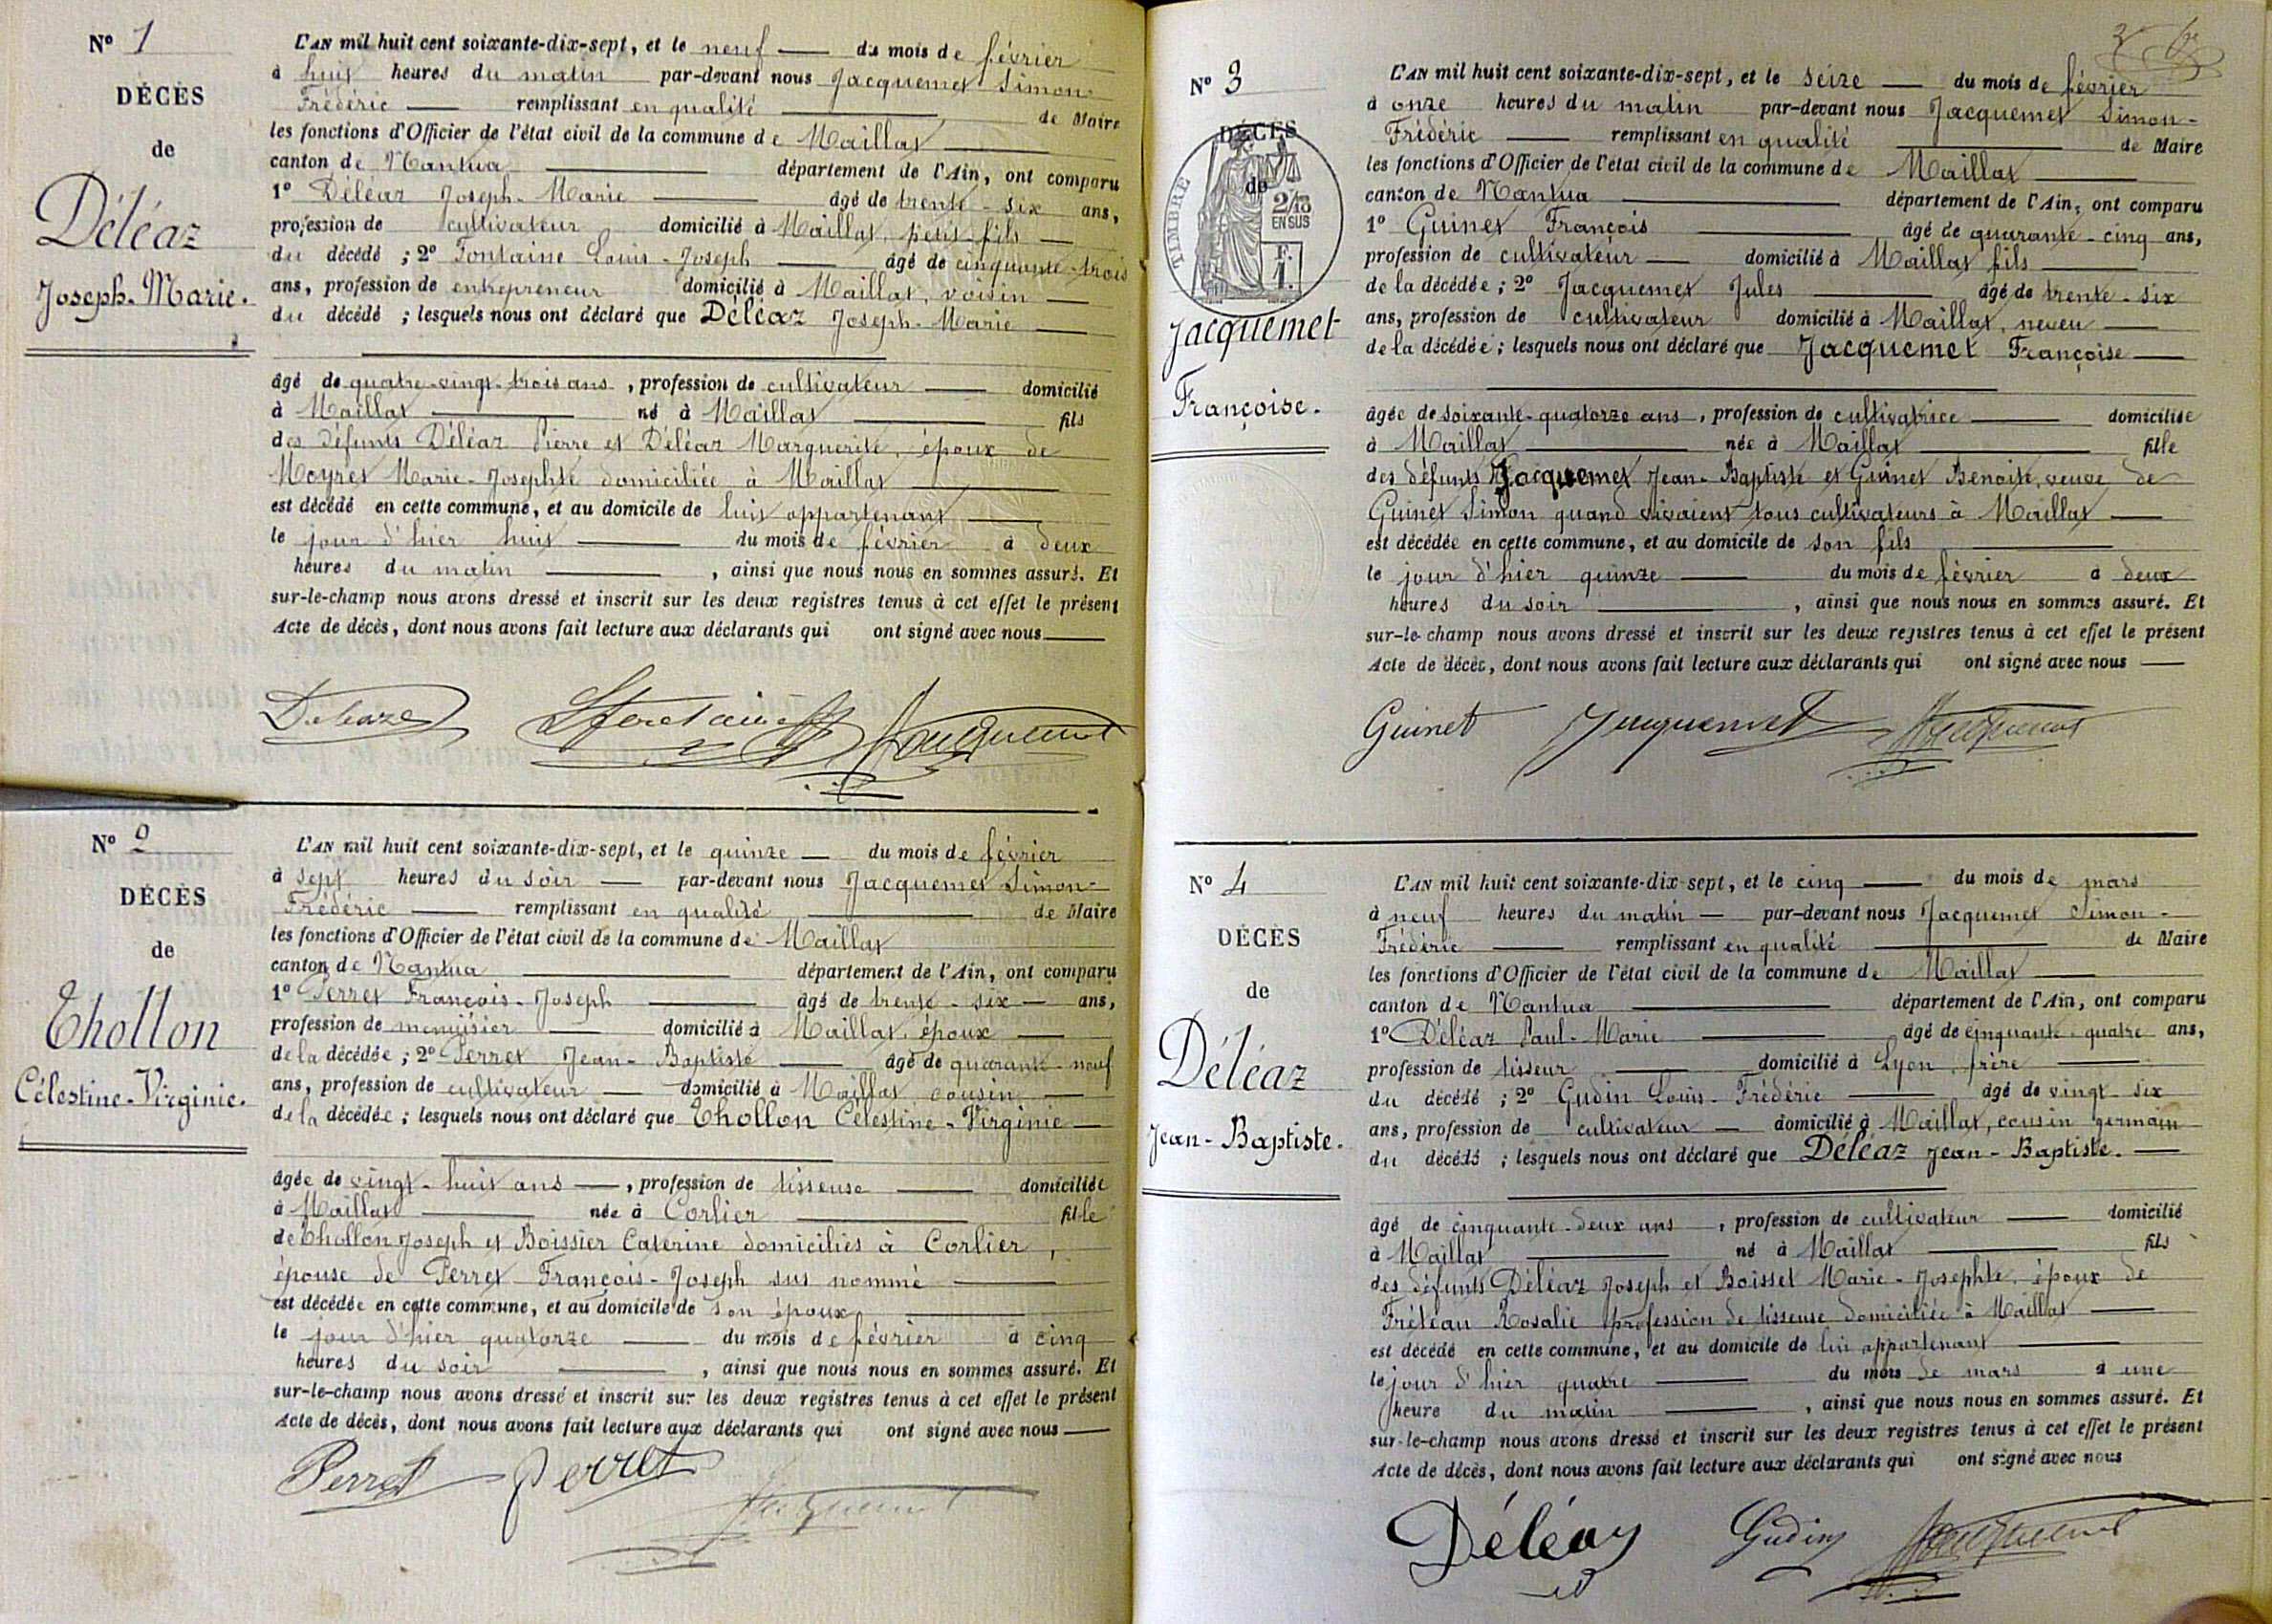 N° 1
DÉCÈS
de
Déléaz
Joseph-Marie.
L'AN mil huit cent soixante-dix-sept, et le neuf du mois de février
à huit heures du matin par-devant nous Jacquemet Simon-
Frédéric remplissant en qualité de Maire
les fonctions d'Officier de l'état civil de la commune de Maillat
canton de Nantua département de l'Ain, ont comparu
1° Déléaz Joseph-Marie âgé de trente-six ans,
profession de cultivateur domicilié à Maillat, petit-fils
du décédé ; 2° Fontaine Louis-Joseph âgé de cinquante-trois
ans, profession de entrepreneur domicilié à Maillat, voisin
du décédé ; lesquels nous ont déclaré que Déléaz Joseph-Marie
âgé de quatre-vingt-trois ans, profession de cultivateur domicilié
à Maillat né à Maillat fils
des défunts Déléaz Pierre et Déléaz Marguerite, époux de
Moyret Marie-Josephte domiciliée à Maillat
est décédé en cette commune, et au domicile de lui appartenant
le jour d'hier huit du mois de février à deux
heures du matin, ainsi que nous nous en sommes assuré. Et
sur-le-champ nous avons dressé et inscrit sur les deux registres tenus à cet effet le présent
Acte de décès, dont nous avons fait lecture aux déclarants qui ont signé avec nous
Deleaze Jacquemet
N° 2
DÉCÈS
de
Thollon
Célestine-Virginie.
L'AN mil huit cent soixante-dix-sept, et le quinze du mois de février
à sept heures du soir par-devant nous Jacquemet Simon-
Frédéric remplissant en qualité de Maire
les fonctions d'Officier de l'état civil de la commune de Maillat
canton de Nantua département de l'Ain, ont comparu
1° Perret François-Joseph âgé de trente-six ans,
profession de menuisier domicilié à Maillat, époux
de la décédée ; 2° Perret Jean-Baptiste âgé de quarante-neuf
ans, profession de cultivateur domicilié à Maillat, cousin
de la décédée ; lesquels nous ont déclaré que Thollon Célestine-Virginie
âgée de vingt-huit ans, profession de tisseuse domiciliée
à Maillat née à Corlier fille
de Thollon Joseph et Boissier Caterine domiciliés à Corlier,
épouse de Perret François-Joseph sus nommé
est décédée en cette commune, et au domicile de son époux
le jour d'hier quatorze du mois de février à cinq
heures du soir, ainsi que nous nous en sommes assuré. Et
sur-le-champ nous avons dressé et inscrit sur les deux registres tenus à cet effet le présent
Acte de décès, dont nous avons fait lecture aux déclarants qui ont signé avec nous
Perret Perret Jacquemet
N° 3
DÉCÈS
de
TIMBRE
2/10
EN SUS
F.
1.
Jacquemet
Françoise.
L'AN mil huit cent soixante-dix-sept, et le seize du mois de février
à onze heures du matin par-devant nous Jacquemet Simon-
Frédéric remplissant en qualité de Maire
les fonctions d'Officier de l'état civil de la commune de Maillat
canton de Nantua département de l'Ain, ont comparu
1° Guinet François âgé de quarante-cinq ans,
profession de cultivateur domicilié à Maillat fils
de la décédée ; 2° Jacquemet Jules âgé de trente-six
ans, profession de cultivateur domicilié à Maillat, neveu
de la décédée ; lesquels nous ont déclaré que Jacquemet Françoise
âgée de soixante-quatorze ans, profession de cultivatrice domiciliée
à Maillat née à Maillat fille
des défunts Jacquemet Jean-Baptiste et Guinet Benoite, veuve de
Guinet Simon quand vivaient tous cultivateurs à Maillat
est décédée en cette commune, et au domicile de son fils
le jour d'hier quinze du mois de février à deux
heures du soir, ainsi que nous nous en sommes assuré. Et
sur-le-champ nous avons dressé et inscrit sur les deux registres tenus à cet effet le présent
Acte de décès, dont nous avons fait lecture aux déclarants qui ont signé avec nous
Guinet Jacquemet Jacquemet
N° 4
DÉCÈS
de
Déléaz
Jean-Baptiste.
L'AN mil huit cent soixante-dix-sept, et le cinq du mois de mars
à neuf heures du matin par-devant nous Jacquemet Simon-
Frédéric remplissant en qualité de Maire
les fonctions d'Officier de l'état civil de la commune de Maillat
canton de Nantua département de l'Ain, ont comparu
1° Déléaz Paul-Marie âgé de cinquante-quatre ans,
profession de tisseur domicilié à Lyon, frère
du décédé ; 2° Gudin Louis-Frédéric âgé de vingt-six
ans, profession de cultivateur domicilié à Maillat, cousin germain
du décédé ; lesquels nous ont déclaré que Déléaz Jean-Baptiste.
âgé de cinquante-deux ans, profession de cultivateur domicilié
à Maillat né à Maillat fils
des défunts Déléaz Joseph et Boisset Marie-Josephte, époux de
Fréteau Rosalie profession de tisseuse domiciliée à Maillat
est décédé en cette commune, et au domicile de lui appartenant
le jour d'hier quatre du mois de mars à une
heure du matin, ainsi que nous nous en sommes assuré. Et
sur-le-champ nous avons dressé et inscrit sur les deux registres tenus à cet effet le présent
Acte de décès, dont nous avons fait lecture aux déclarants qui ont signé avec nous
Déléaz Gudin Jacquemet